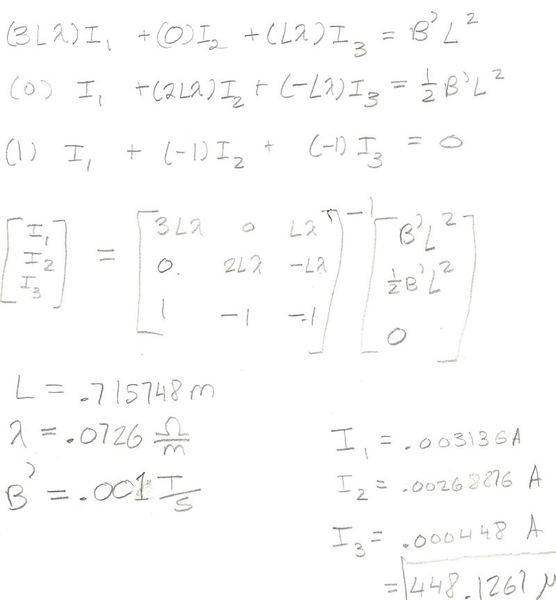 (3Lλ)I₁ + (0)I₂ + (Lλ)I₃ = B'L²
(0) I₁ + (2Lλ)I₂ + (-Lλ)I₃ = ½B'L²
(1) I₁ + (-1)I₂ + (-1)I₃ = 0
[I₁ I₂ I₃] = [3Lλ 0 Lλ
0. 2Lλ -Lλ
1 -1 -1]⁻¹ [B'L² ½B'L² 0]
L = .715748m
λ = .0726 Ω/m
B' = .001 T/s
I₁ = .003136A
I₂ = .00268876 A
I₃ = .000448 A
= 448.1267 μ